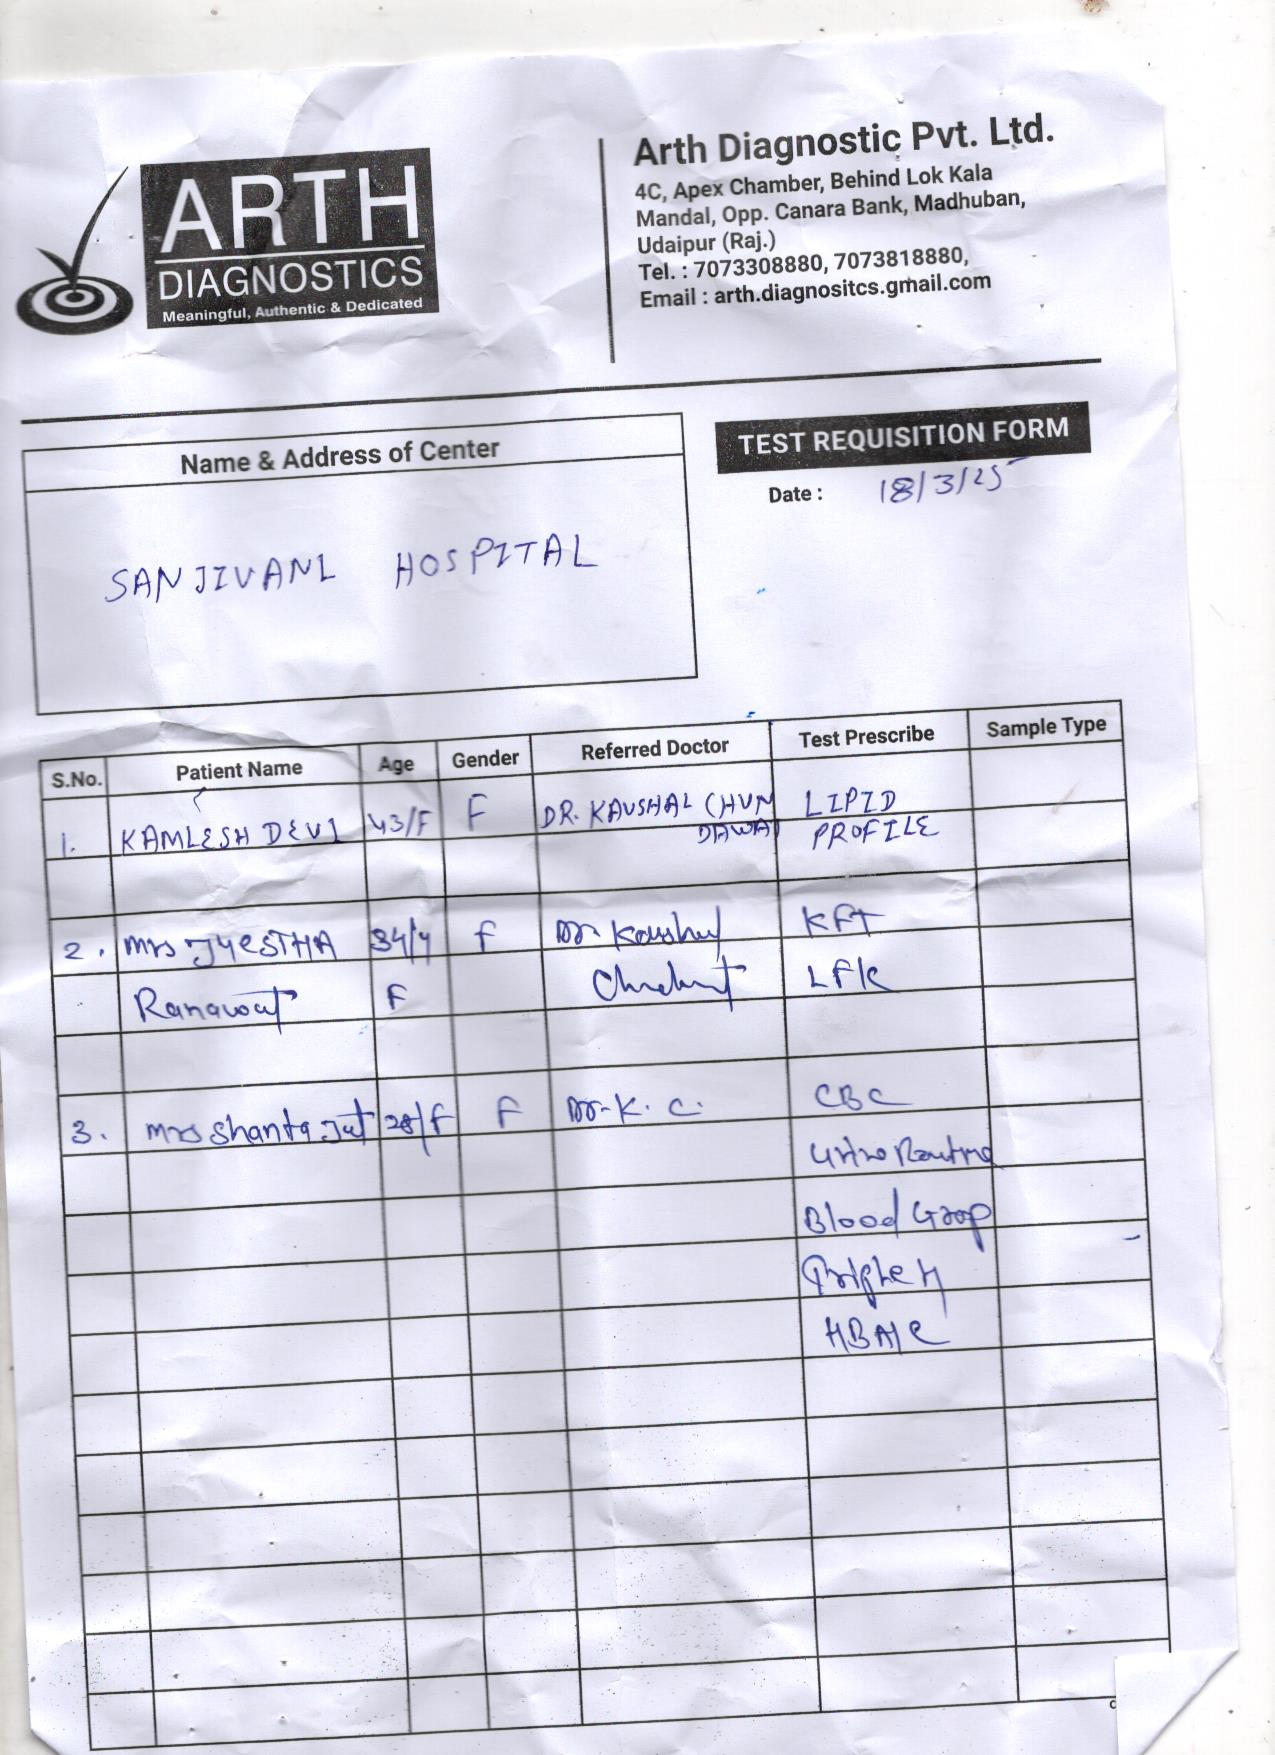 ARTH
DIAGNOSTICS
Meaningful, Authentic & Dedicated
Arth Diagnostic Pvt. Ltd.
4C, Apex Chamber, Behind Lok Kala
Mandal, Opp. Canara Bank, Madhuban,
Udaipur (Raj.)
Tel. : 7073308880, 7073818880,
Email : arth.diagnositcs.gmail.com
Name & Address of Center
SANJIVANI HOSPITAL
TEST REQUISITION FORM
Date : 18/3/25
S.No. Patient Name Age Gender Referred Doctor Test Prescribe Sample Type
1. KAMLESH DEVI 43/F F DR. KAUSHAL CHUN LIPID
DAWAT PROFILE
2. Mrs JYESTHA 34/y F Dr. Kaushal KFT
Ranawat F
3. Mrs Shanta 28/F F Dr. K. C. CBC
Blood Group
HBA1C